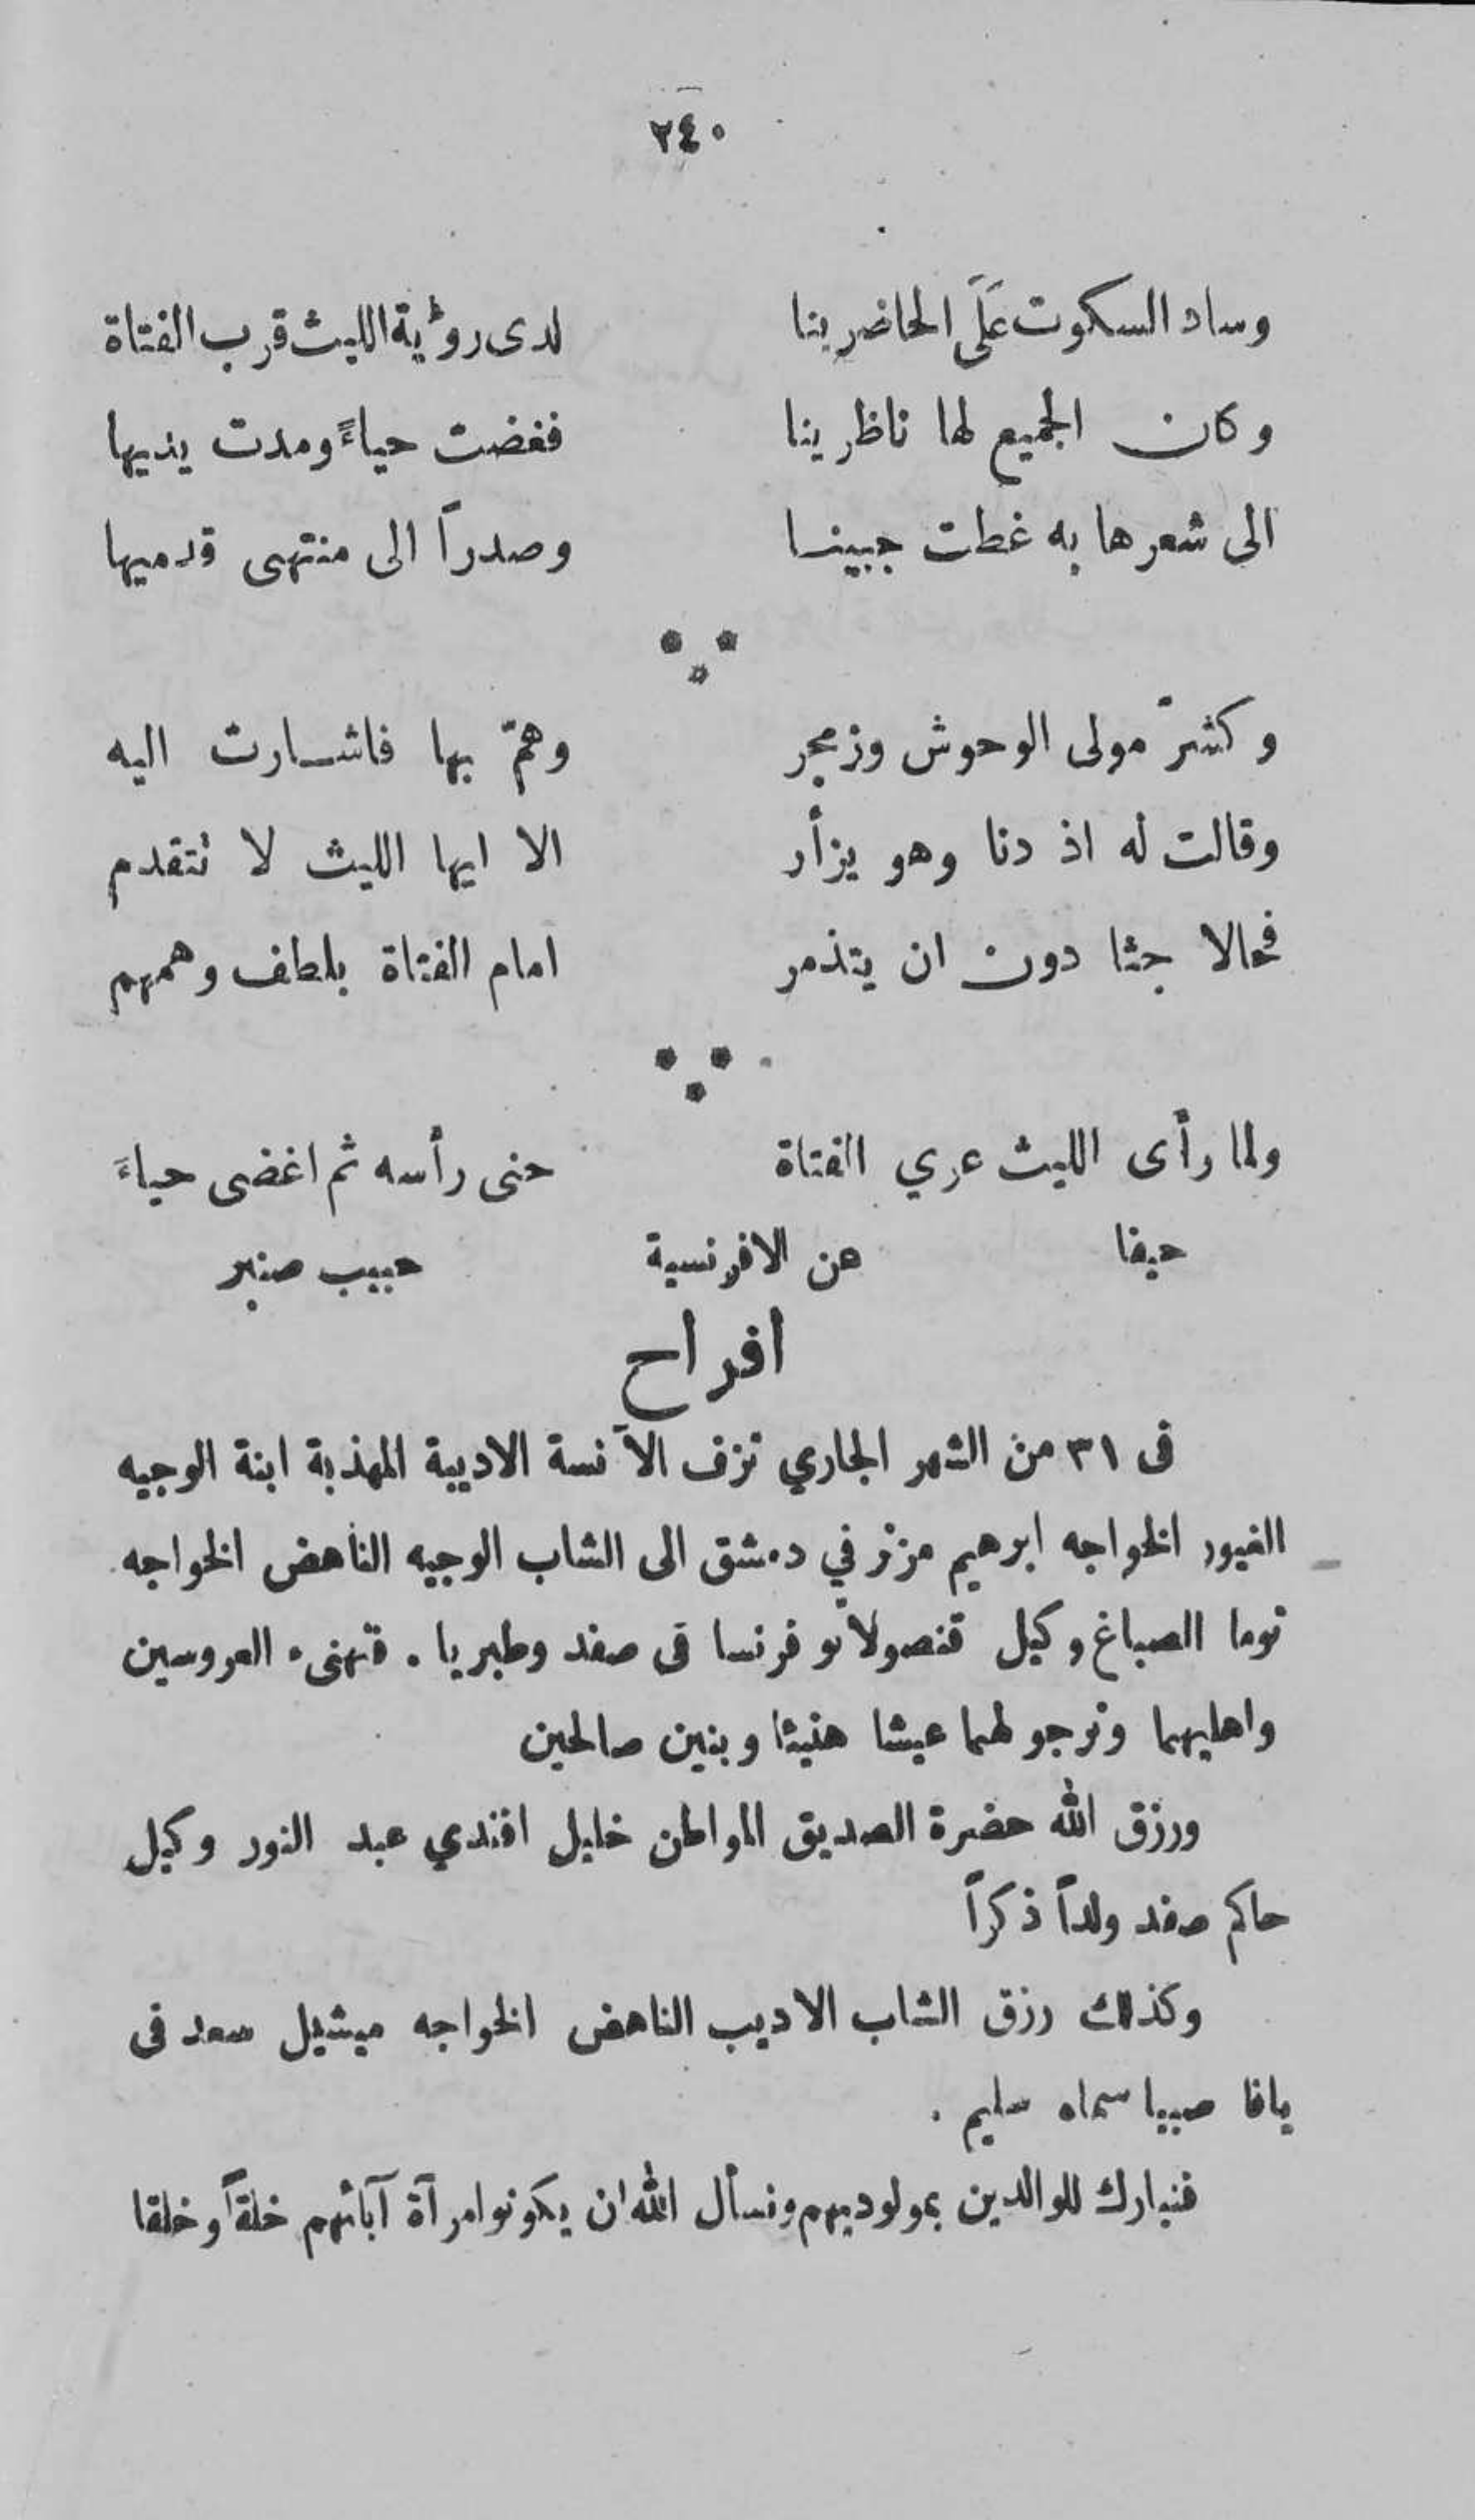 ٢٤٠
وساد السكوت عَلَى الحاضرينا لدى رؤية الليث قرب الفتاة
وكان الجميع لها ناظرينا فغضت حياءً ومدت يديها
الى شعرها به غطت جبينا وصدراً الى منتهى قدميها
وكشرّ مولى الوحوش وزمجر وهمّ بها فاشارت اليه
وقالت له اذ دنا وهو يزأر الا ايها الليث لا تتقدم
فحالا جثا دون ان يتذمر امام الفتاة بلطف وهمهم
ولما رأى الليث عري الفتاة حنى رأسه ثم اغضى حياءً
حيفا عن الافرنسية حبيب صنبر
افراح
فى ٣١ من الشهر الجاري تزف الآنسة الاديبة المهذبة ابنة الوجيه
الغيور الخواجه ابرهيم مزنر في دمشق الى الشاب الوجيه الناهض الخواجه
توما الصباغ وكيل قنصولاتو فرنسا فى صفد وطبريا . فنهنىء العروسين
واهليهما ونرجو لهما عيشا هنيئا وبنين صالحين
ورزق الله حضرة الصديق المواطن خليل افندي عبد النور وكيل
حاكم صفد ولداً ذكراً
وكذلك رزق الشاب الاديب الناهض الخواجه ميشيل سعد فى
يافا صبيا سماه سليم .
فنبارك للوالدين بمولوديهم ونسأل الله ان يكونوا مرآة آبائهم خلقاً وخلقا